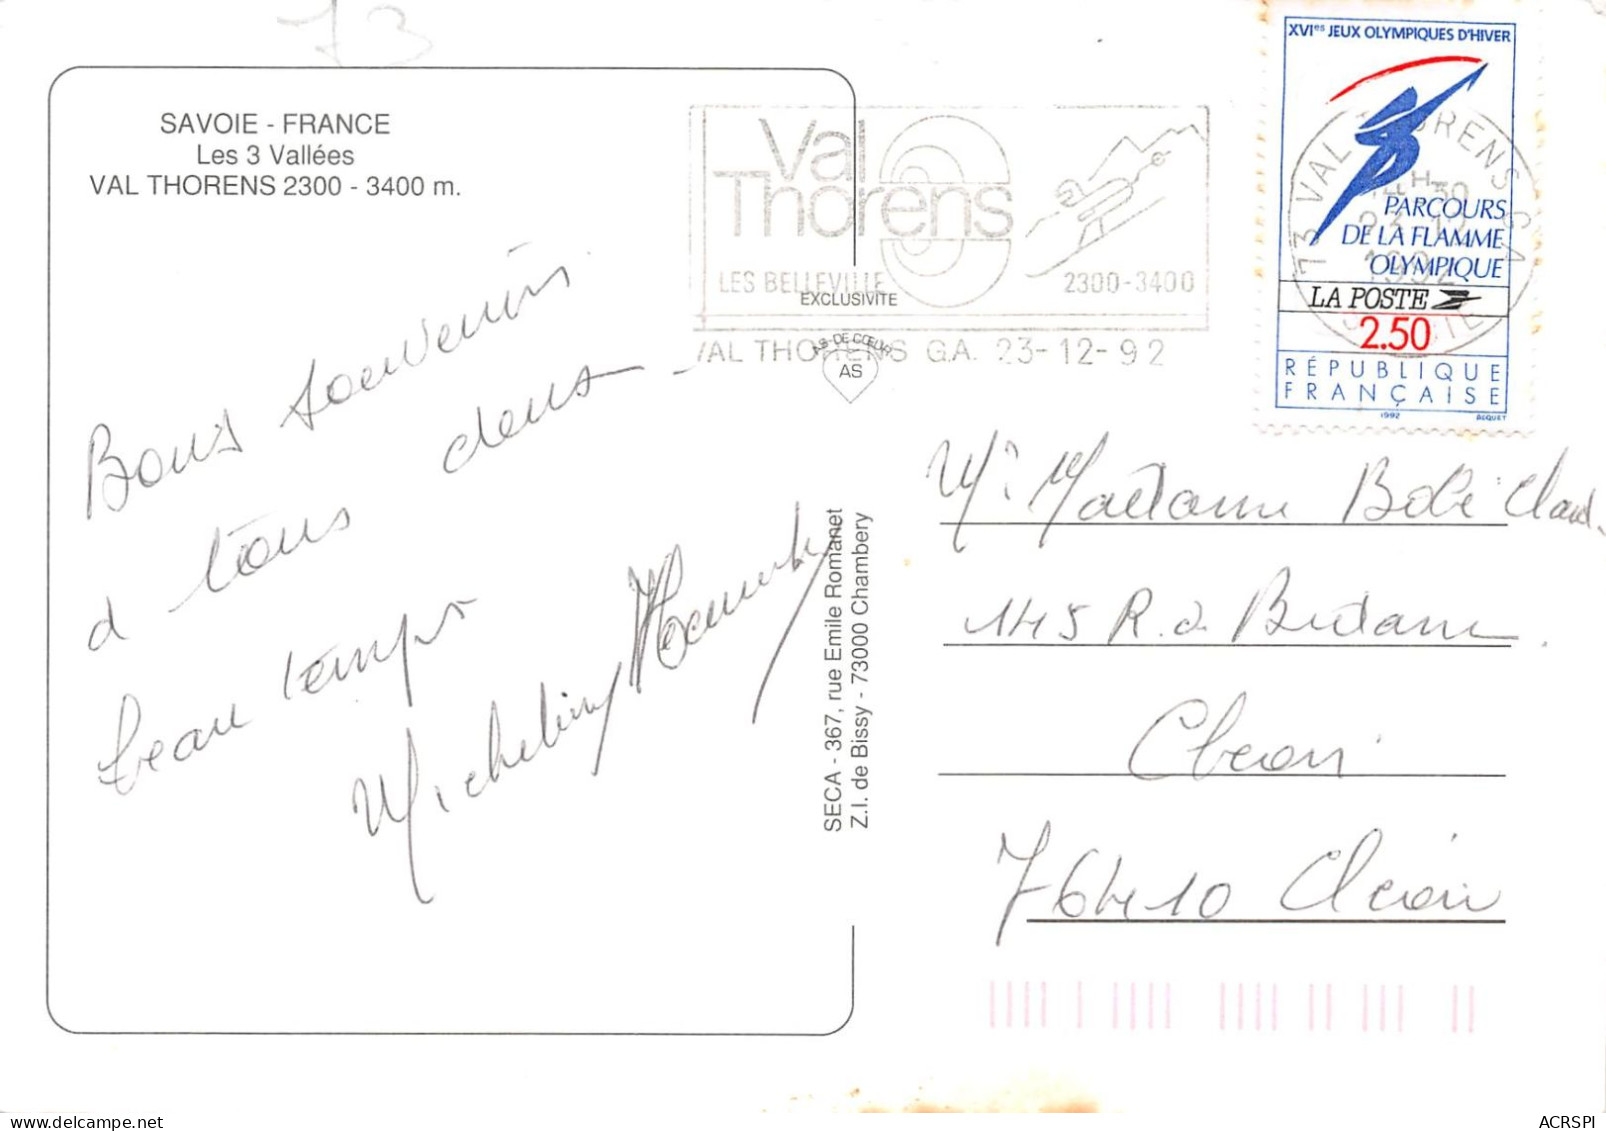 73
SAVOIE - FRANCE
Les 3 Vallées
VAL THORENS 2300 - 3400 m.
Bons souvenirs
à tous dans
beau temps
Val
Thorens
LES BELLEVILLE
2300-3400
VAL THORENS G.A. 23-12-92
EXCLUSIVITE
AS DE CŒUR
AS
SECA - 367, rue Emile Romanet
Z.I. de Bissy - 73000 Chambery
XVIes JEUX OLYMPIQUES D'HIVER
PARCOURS
DE LA FLAMME
OLYMPIQUE
LA POSTE
2.50
RÉPUBLIQUE
FRANÇAISE
1992
73 VAL THORENS G.A
14H30
23-12
1992
SAVOIE
Mr Madame
145 R. de
Cléon
76410 Cléon
ACRSPI